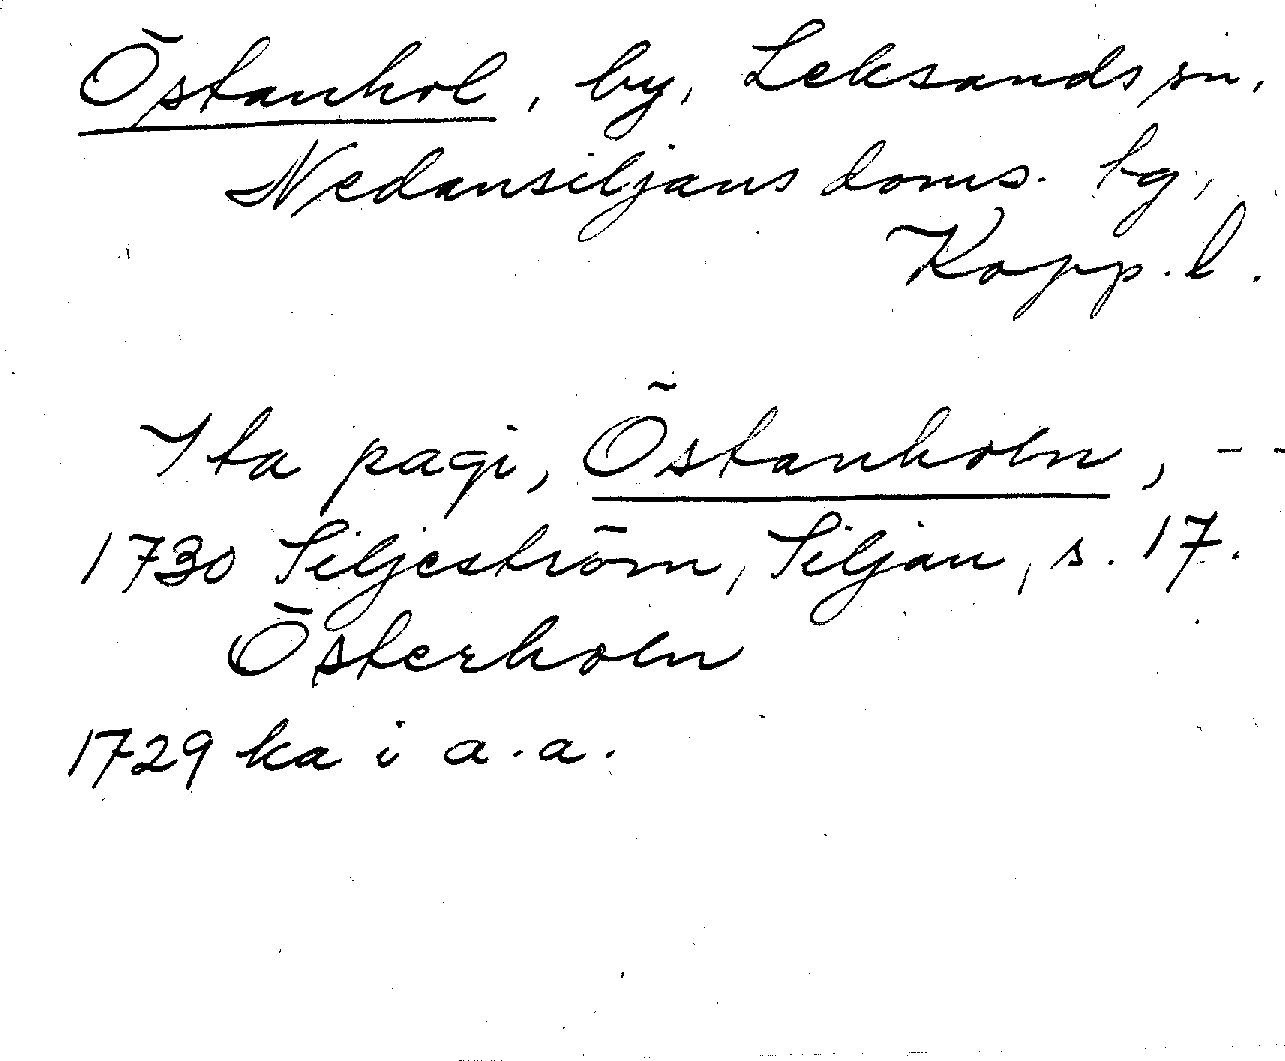 Östanhol, by, Leksands sn,
Nedansiljans doms. bg,
Kopp. l.
Ita pagi, Östanholn, - -
1730 Siljeström, Siljan, s. 17.
Österholn
1729 ka i a.a.